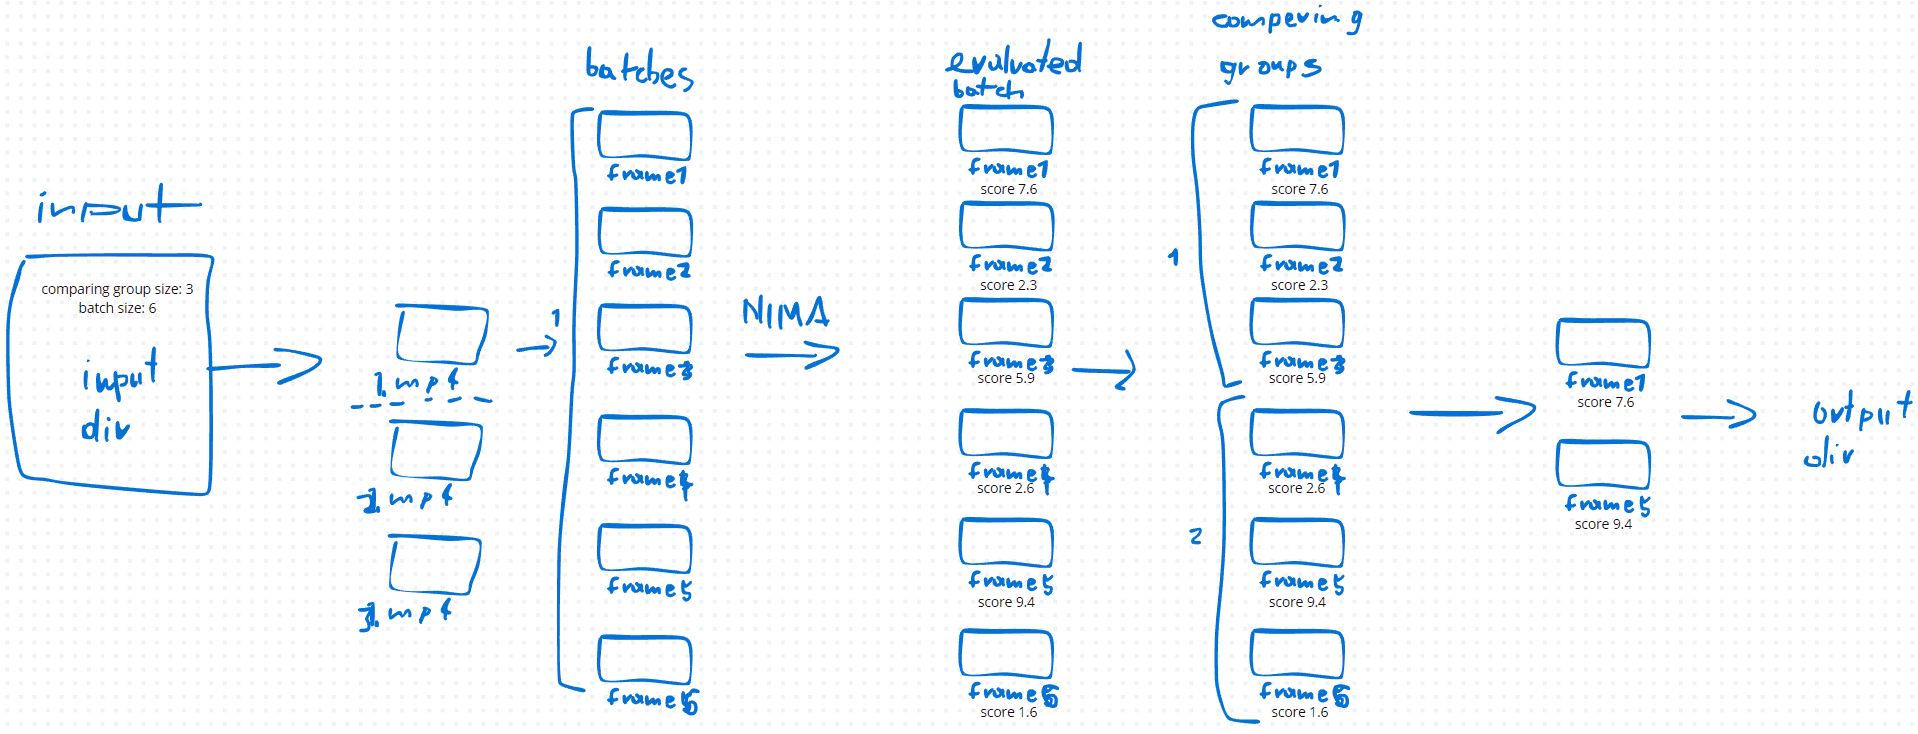 input
comparing group size: 3
batch size: 6
input
dir
1.mp4
2.mp4
3.mp4
batches
1
frame1
frame2
frame3
frame4
frame5
frame6
NIMA
evaluated
batch
frame1
score 7.6
frame2
score 2.3
frame3
score 5.9
frame4
score 2.6
frame5
score 9.4
frame6
score 1.6
compering
groups
1
frame1
score 7.6
frame2
score 2.3
frame3
score 5.9
2
frame4
score 2.6
frame5
score 9.4
frame6
score 1.6
frame1
score 7.6
frame5
score 9.4
output
dir